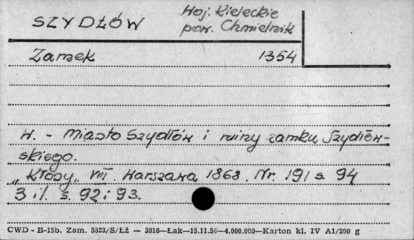 SZYDŁÓW
Woj. Kieleckie
pow. Chmielnik
Zamek 1354
W. - Miasto Szydłów i ruiny zamku Szydłow-
skiego.
"Kłosy" VII. Warszawa 1868. Nr. 191 s. 94
3 il. s. 92 i 93.
CWD - B-15b. Zam. 5023/S/Łż — 3016—Łak—15.11.56—4.000.000—Karton kl. IV A1/200 g